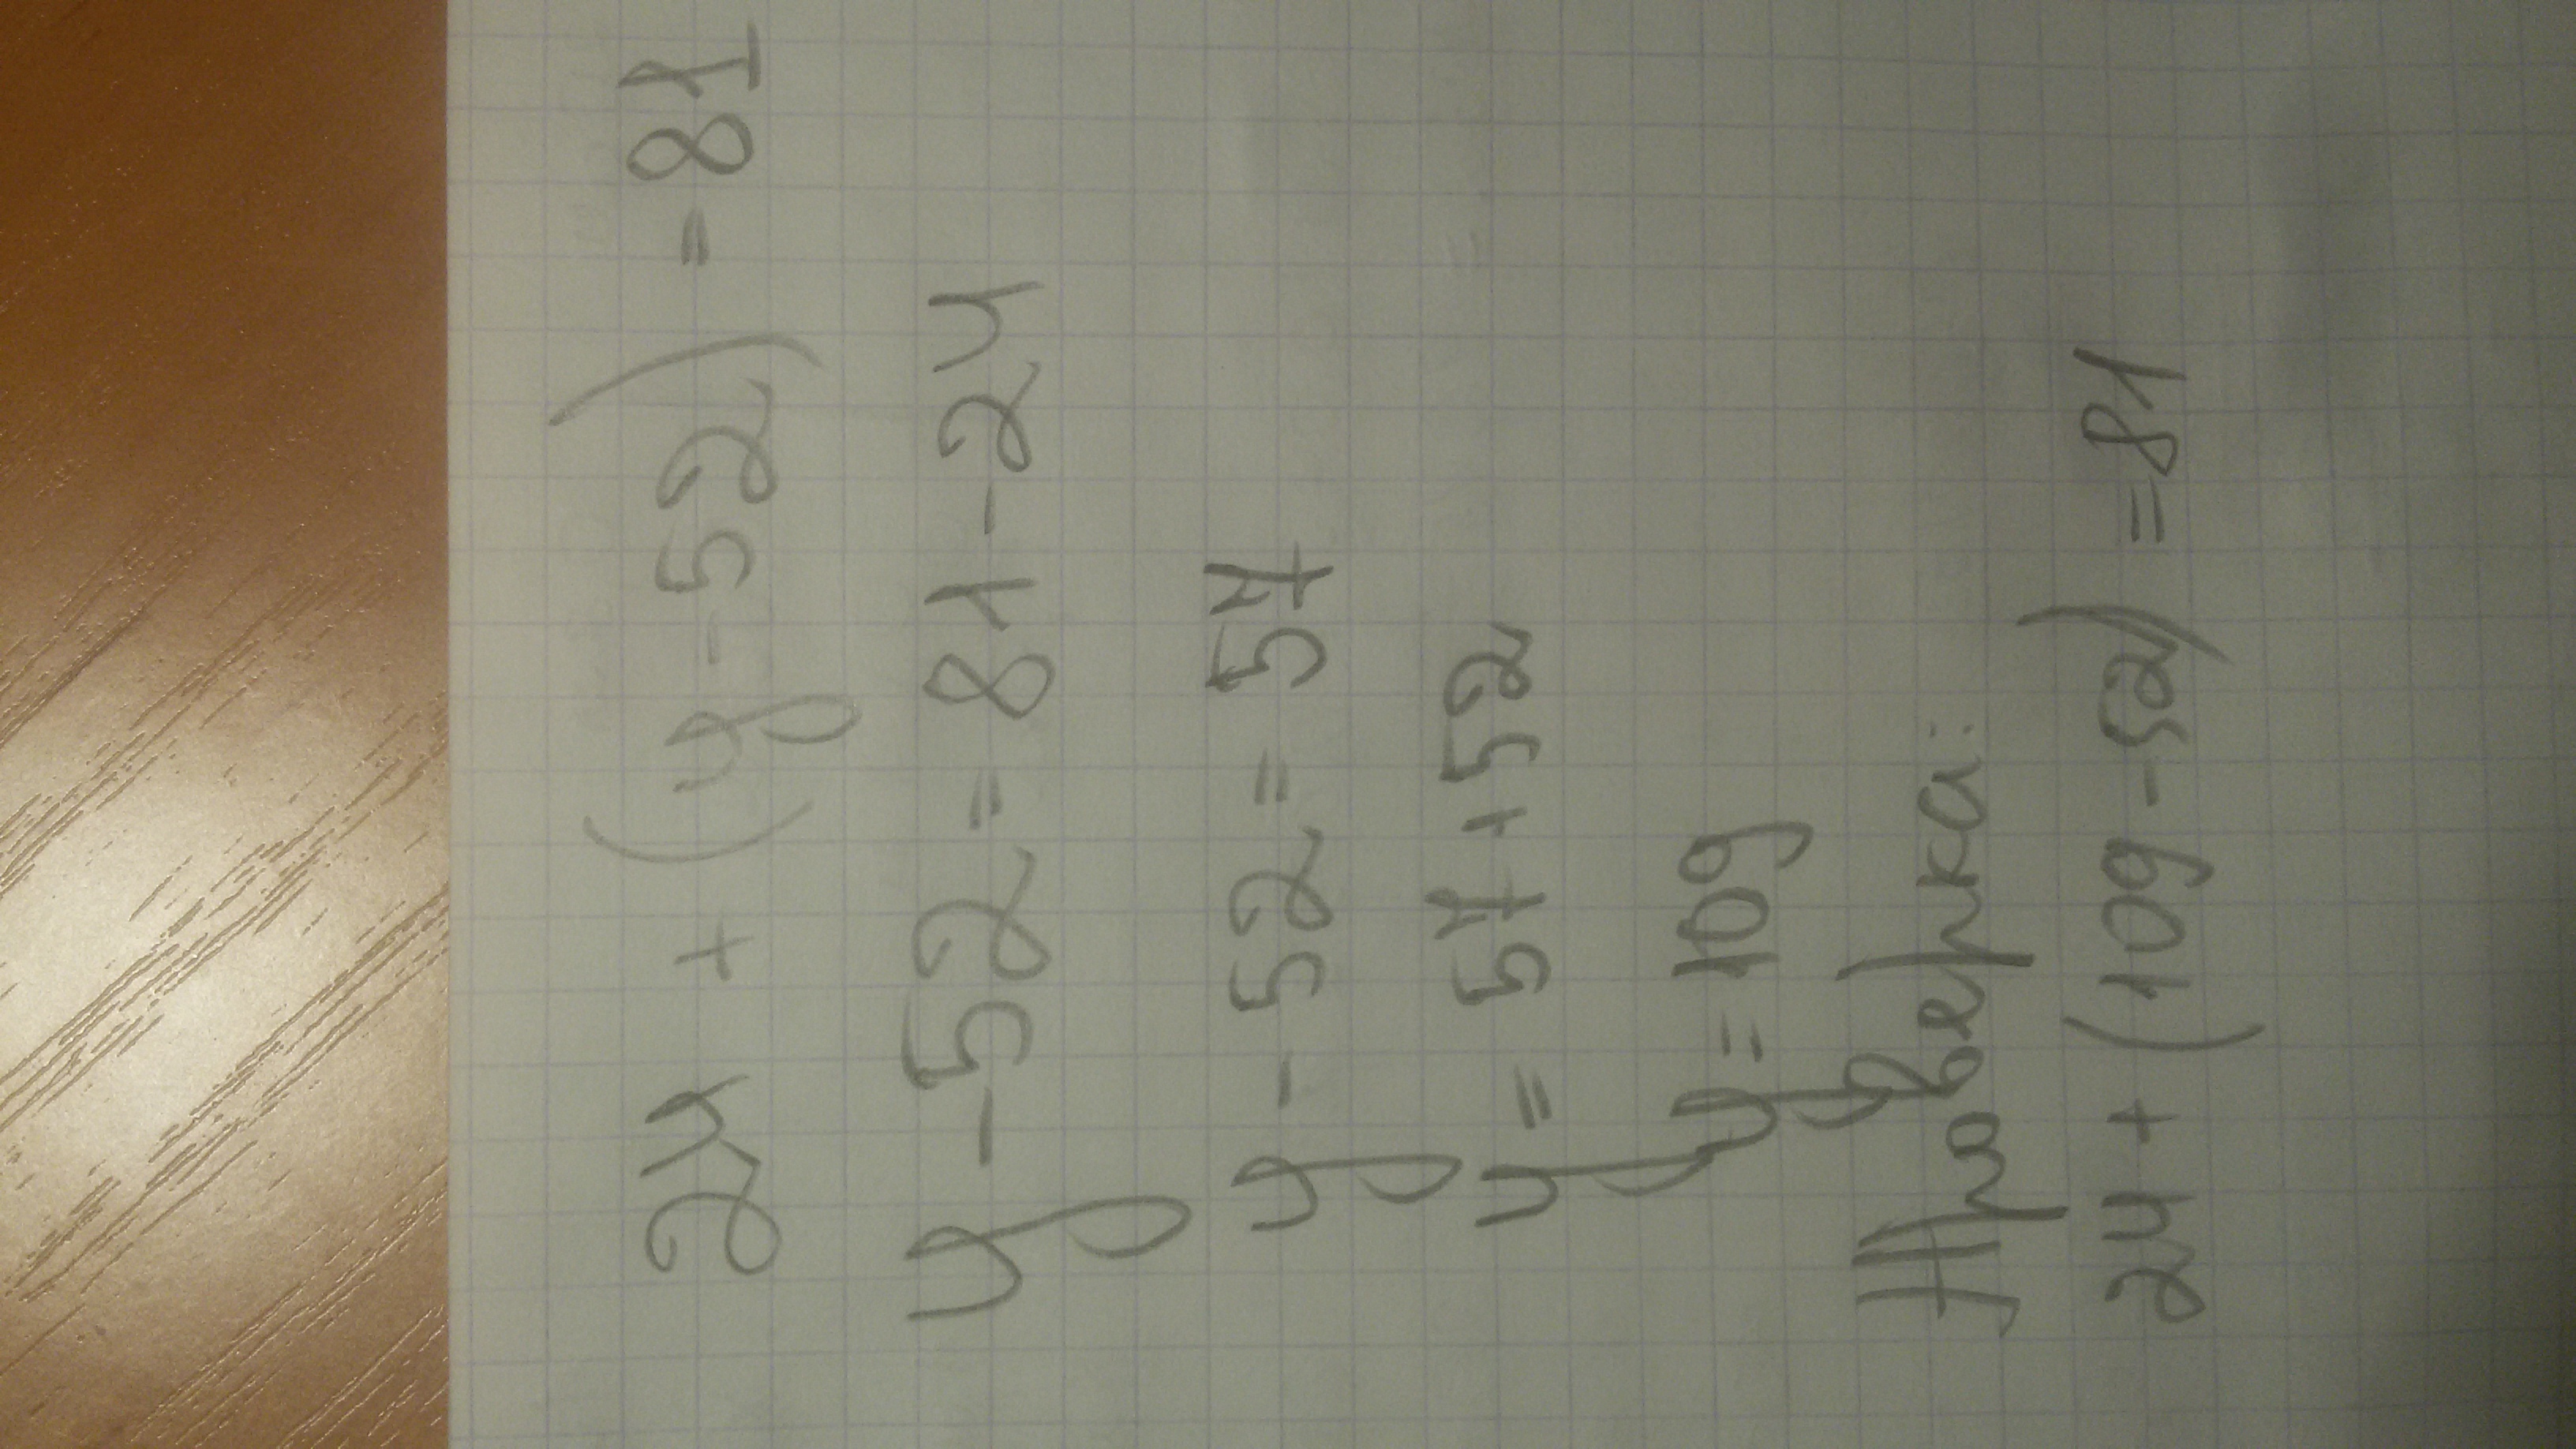 24 + (y - 52) = 81
y - 52 = 81 - 24
y - 52 = 57
y = 57 + 52
y = 109
Проверка:
24 + (109 - 52) = 81